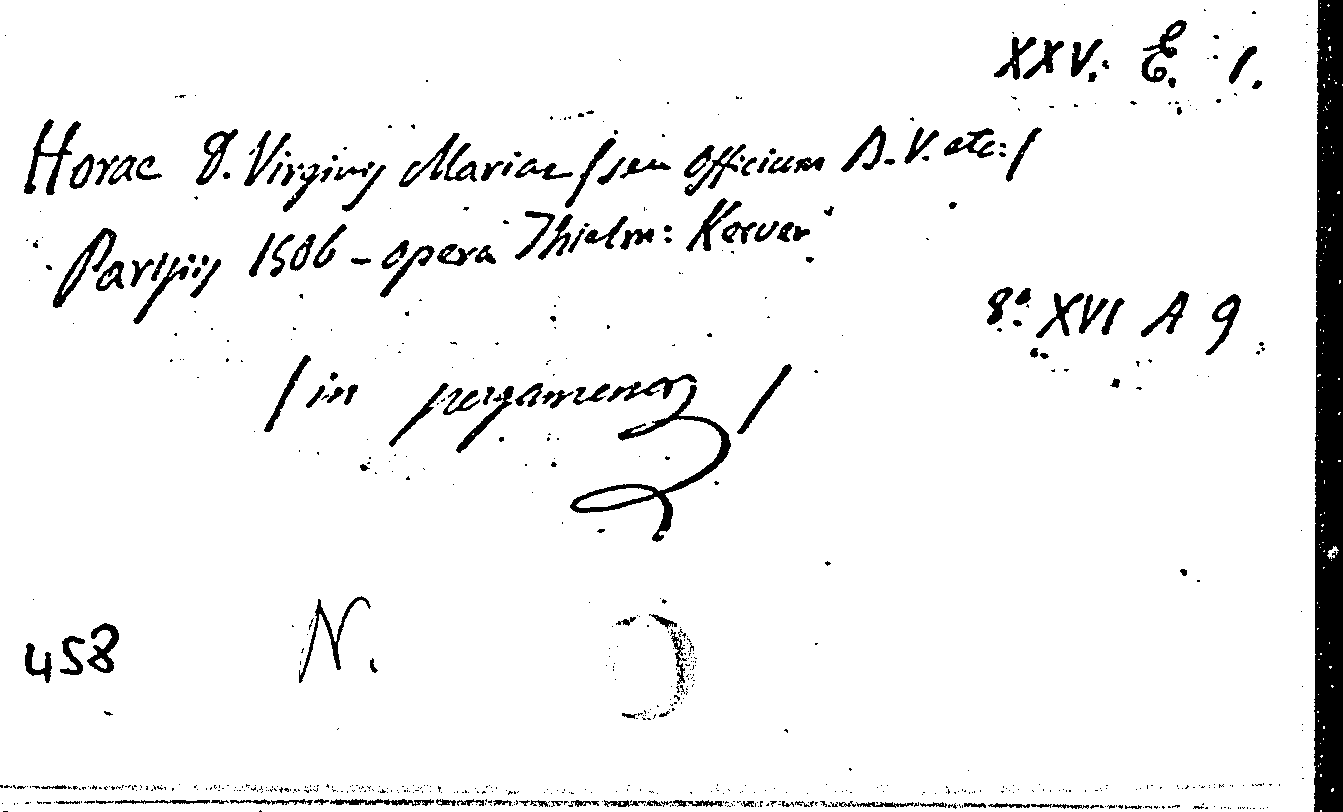 XXV. E. 1.
Horae B. Virginis Mariae /seu Officium B. V. etc:/
Parisiis 1506 – opera Thielm: Kerver
8º XVI A 9
/in pergameno/
458 N.